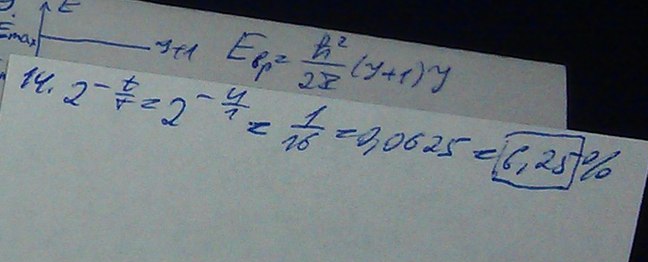 E
Emax
y+1
Eвр = ħ²/2I (y+1)y
14. 2^(-t/T) = 2^(-4/1) = 1/16 = 0,0625 = 6,25 %